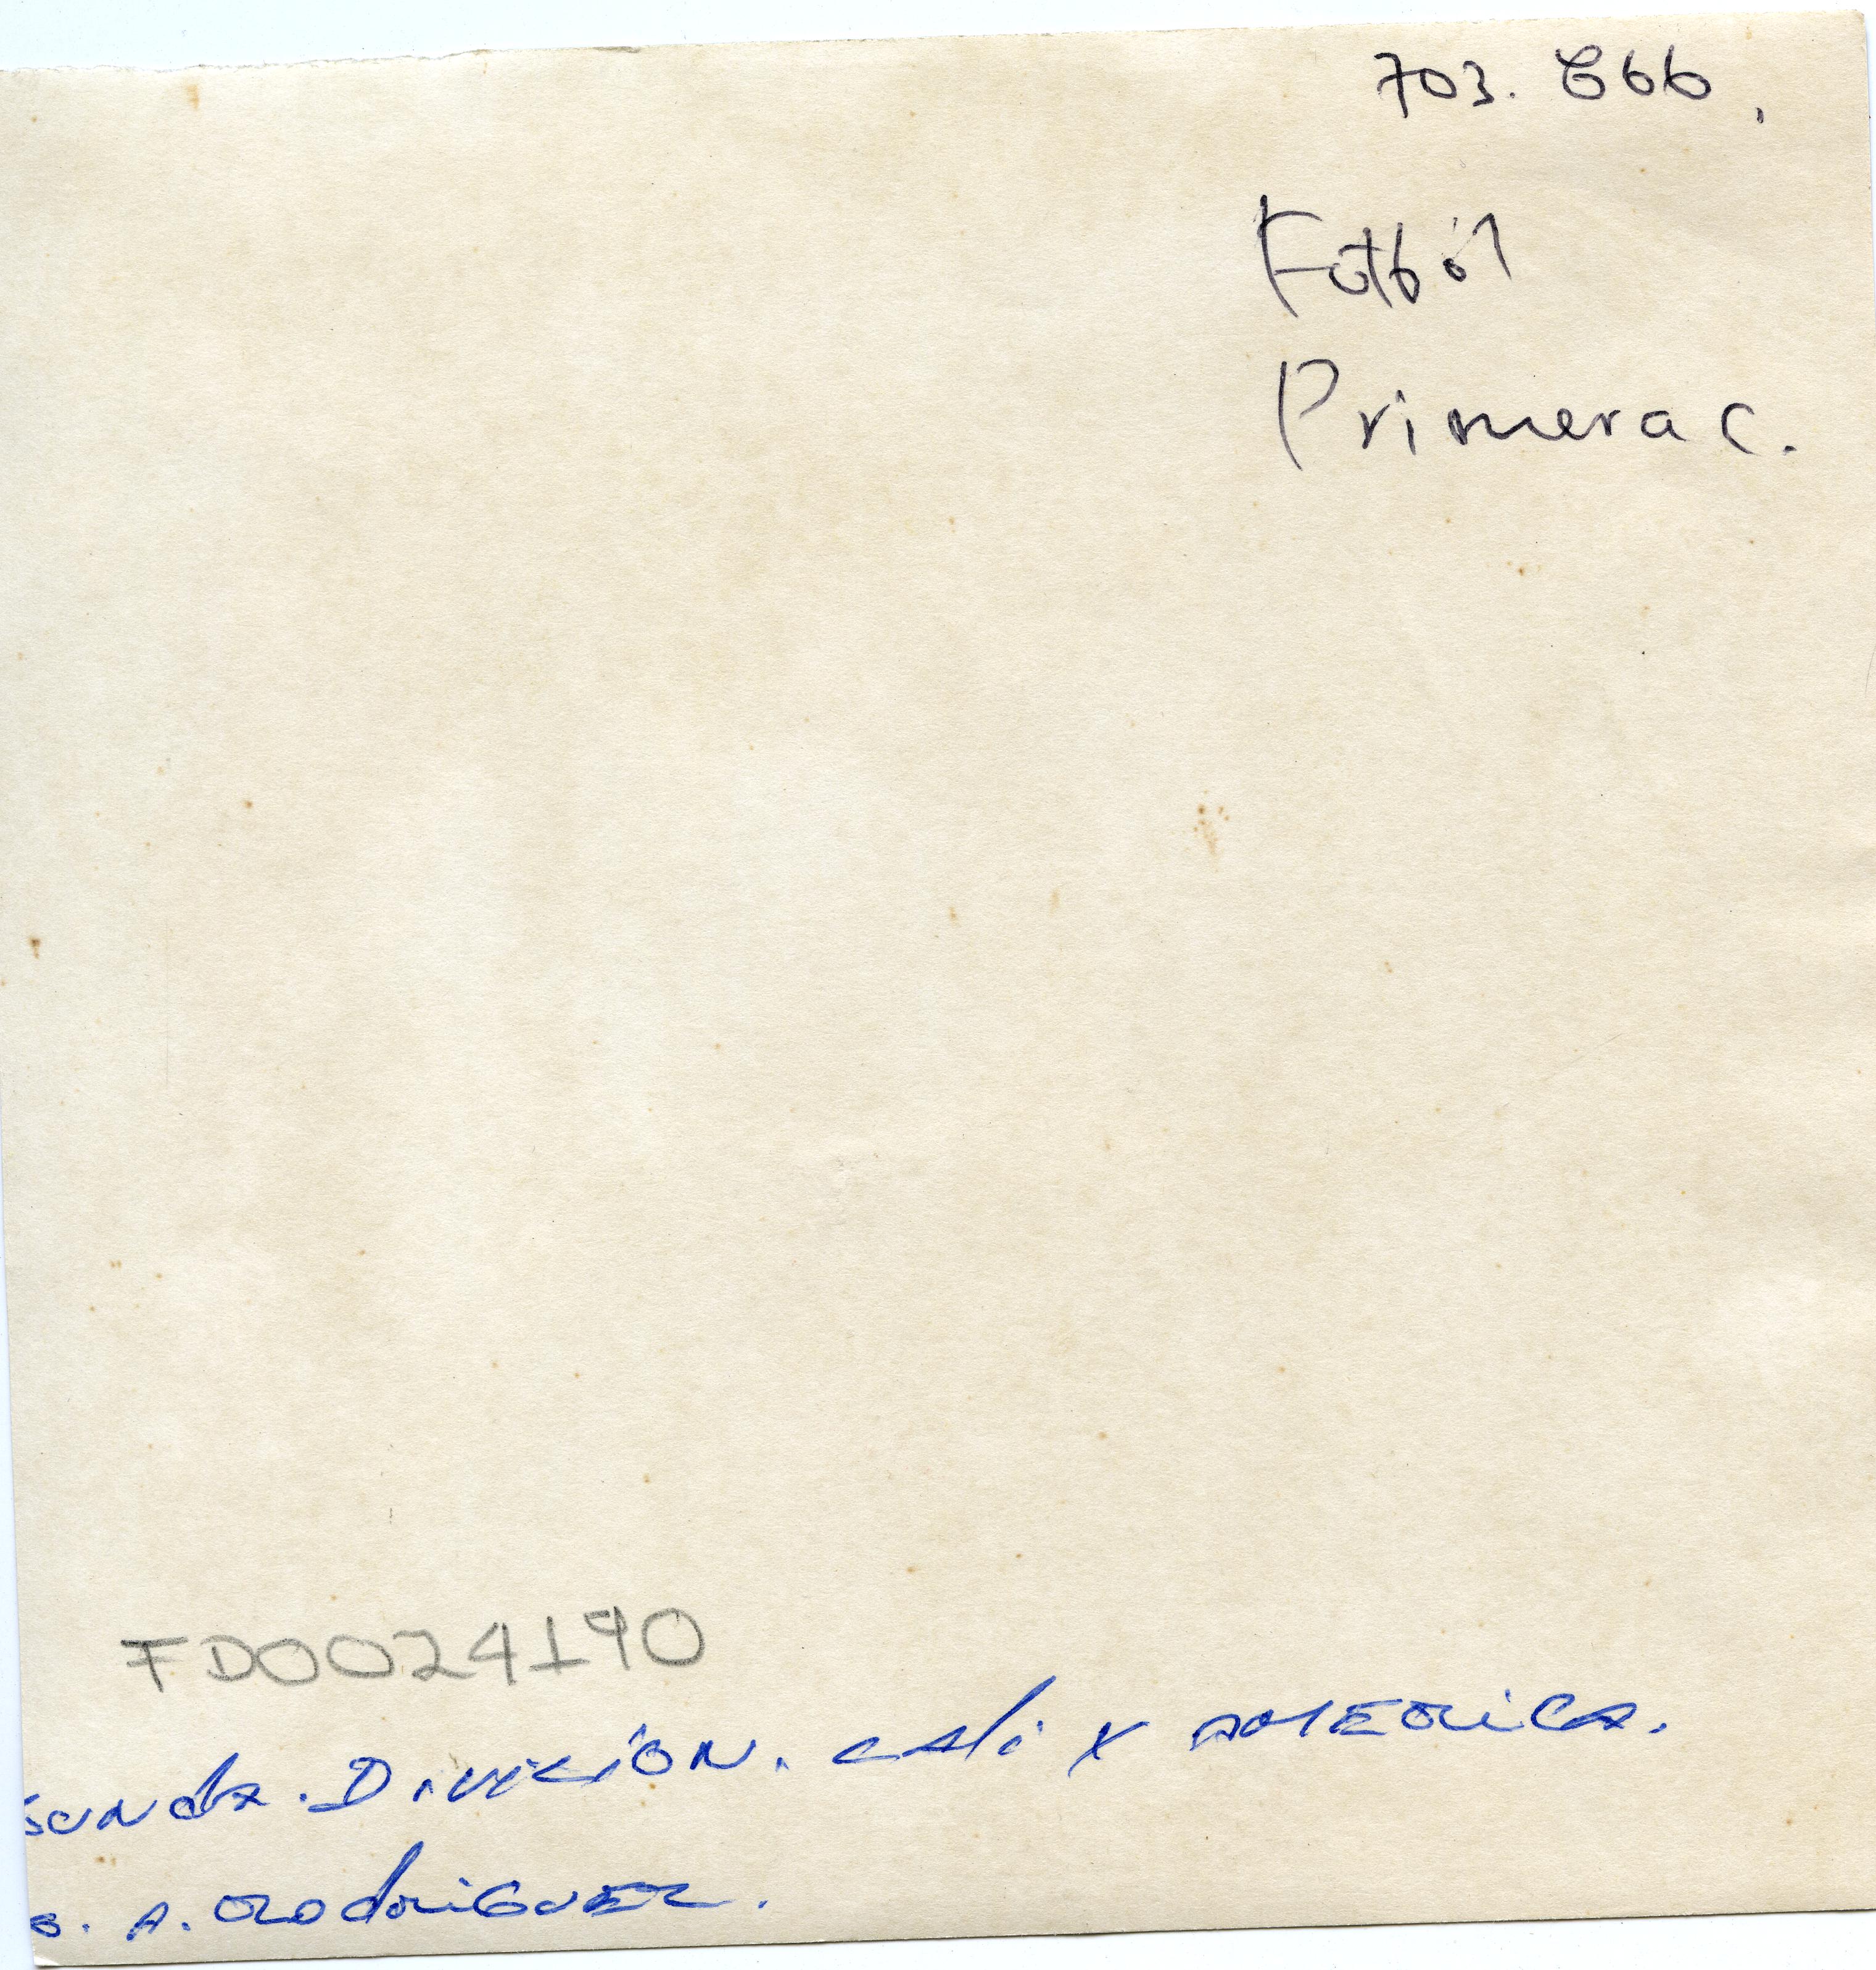 703. 666.
Fútból
Primera C.
FD0024190
gunda. Division. Cali X America.
o. A. Rodriguez.